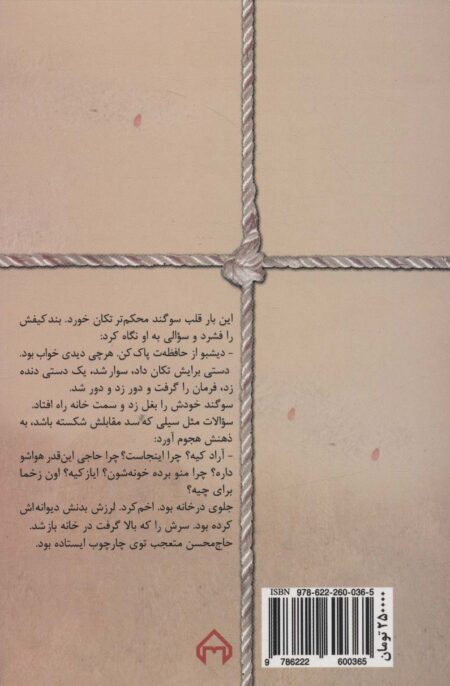 این بار قلب سوگند محکم‌تر تکان خورد. بند کیفش
را فشرد و سؤالی به او نگاه کرد:
- دیشبو از حافظه‌ت پاک کن. هرچی دیدی خواب بود.
دستی برایش تکان داد، سوار شد، یک دستی دنده
زد، فرمان را گرفت و دور زد و دور شد.
سوگند خودش را بغل زد و سمت خانه راه افتاد.
سؤالات مثل سیلی که سد مقابلش شکسته باشد، به
ذهنش هجوم آورد:
- آراد کیه؟ چرا اینجاست؟ چرا حاجی این‌قدر هواشو
داره؟ چرا منو برده خونه‌شون؟ ایاز کیه؟ اون زخما
برای چیه؟
جلوی درخانه بود. اخم کرد. لرزش بدنش دیوانه‌اش
کرده بود. سرش را که بالا گرفت در خانه باز شد.
حاج‌محسن متعجب توی چارچوب ایستاده بود.
ISBN 978-622-260-036-5
9 786222 600365
۲۵۰۰۰۰ تومان